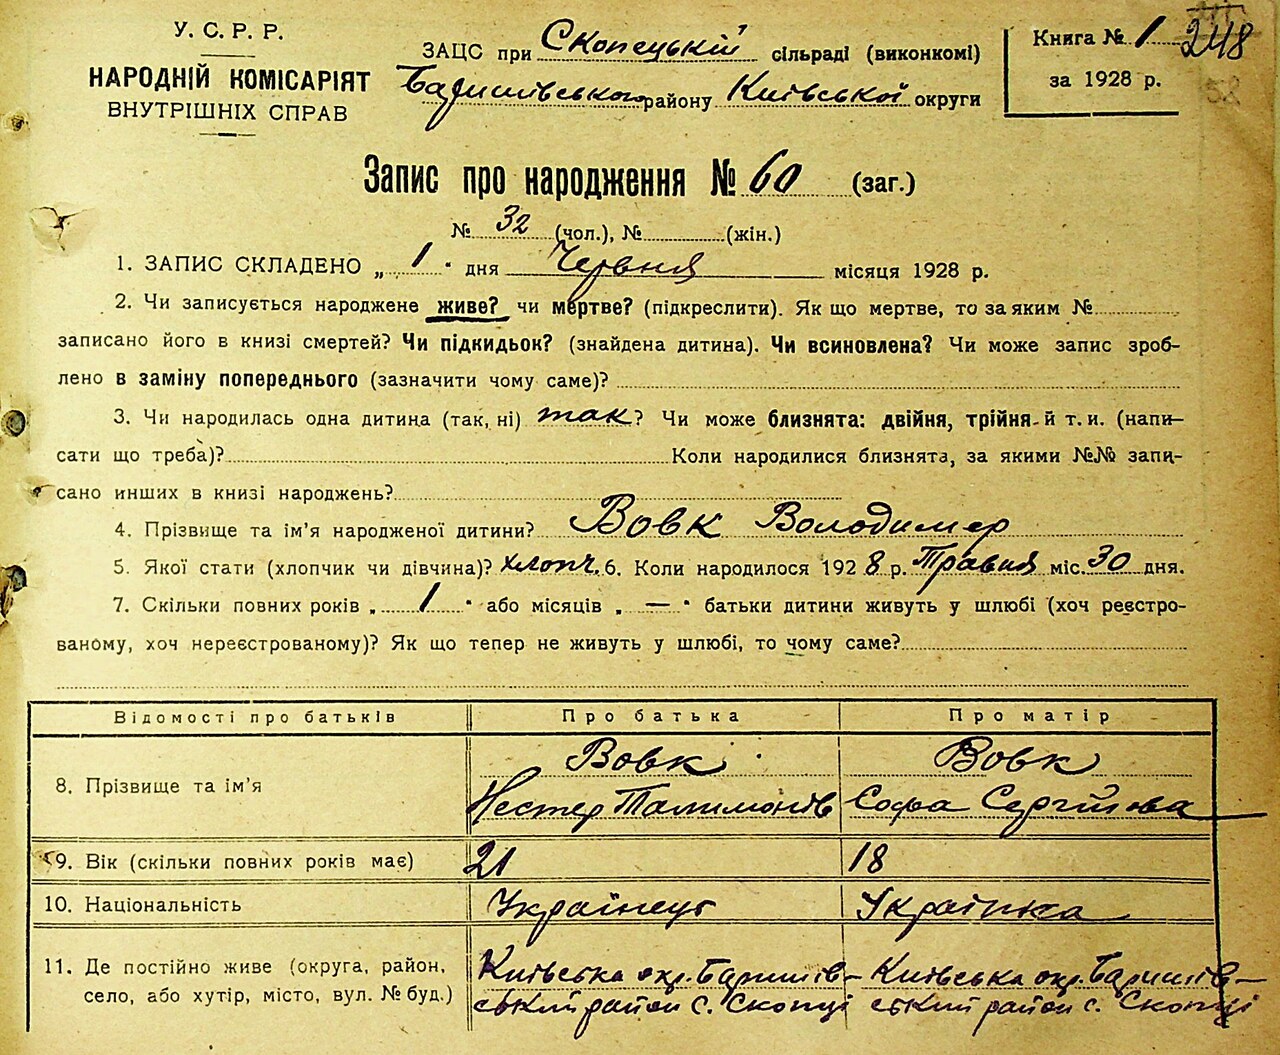 У. С. Р. Р.
НАРОДНІЙ КОМІСАРІЯТ
ВНУТРІШНІХ СПРАВ
ЗАЦС при Скопецькій сільраді (виконкомі)
Баришівського району Київської округи
Книга № 1 248
за 1928 р.
Запис про народження № 60 (заг.)
№ 32 (чол.), № (жін.)
1. ЗАПИС СКЛАДЕНО „ 1 " дня Червня місяця 1928 р.
2. Чи записується народжене живе? чи мертве? (підкреслити). Як що мертве, то за яким №
записано його в книзі смертей? Чи підкидьок? (знайдена дитина). Чи всиновлена? Чи може запис зроб-
лено в заміну попереднього (зазначити чому саме)?
3. Чи народилась одна дитина (так, ні) так? Чи може близнята: двійня, трійня й т. и. (напи-
сати що треба)? Коли народилися близнята, за якими №№ запи-
сано инших в книзі народжень?
4. Прізвище та ім'я народженої дитини? Вовк Володимер
5. Якої стати (хлопчик чи дівчина)? хлопч. 6. Коли народилося 1928 р. Травня міс. 30 дня.
7. Скільки повних років „ 1 " або місяців „ — " батьки дитини живуть у шлюбі (хоч реєстро-
ваному, хоч нереєстрованому)? Як що тепер не живуть у шлюбі, то чому саме?
Відомості про батьків Про батька Про матір
8. Прізвище та ім'я Вовк Вовк
Нестер Палимонів Софа Сергіївна
9. Вік (скільки повних років має) 21 18
10. Національність Українець Українка
11. Де постійно живе (округа, район, Київська окр. Баришів- Київська окр. Баришів-
село, або хутір, місто, вул. № буд.) ський район с. Скопці ський район с. Скопці